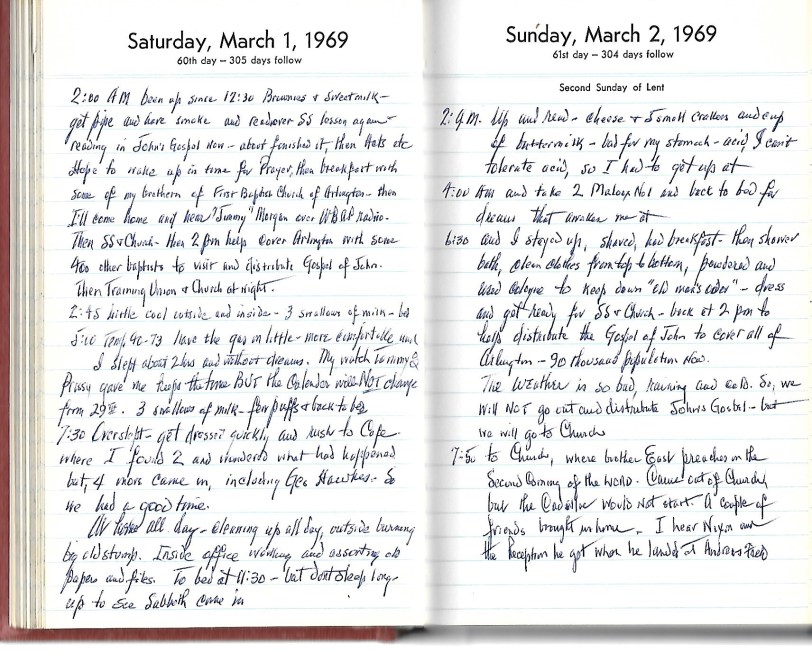 Saturday, March 1, 1969
60th day – 305 days follow
2:00 AM been up since 12:30 Brownies & Sweetmilk –
get pipe and have smoke and read over SS lesson again –
reading in John's Gospel now – about finished it, then Hats etc
Hope to wake up in time for Prayer, then breakfast with
some of my brethern of First Baptist Church of Arlington – then
I'll come home and hear "Jimmy" Morgan over WBAP radio.
Then SS & Church – then 2 pm help cover Arlington with some
400 other baptists to visit and distribute Gospel of John.
Then Training Union & Church at night.
2:45 little cool outside and inside – 3 swallows of milk – bed
5:00 Temp 40-73 have the gas on little – more comfortable and
I slept about 2 hrs and without dreams. My watch Tommy &
gave me keeps the time BUT the Calendar will NOT change
from 29th. 3 swallows of milk – few puffs & back to bed
7:30 Overslept – get dressed quickly and rush to Cafe
where I found 2 and wondered what had happened
but, 4 more came in, including Geo Hawkes. So
we had a good time.
At home all day – cleaning up all day, outside burning
big old stump. Inside office working and assorting old
papers and files. To bed at 11:30 – but dont sleep long –
up to see Sabboth come in
Sunday, March 2, 1969
61st day – 304 days follow
Second Sunday of Lent
2: A.M. Up and read – cheese & small crackers and cup
of buttermilk – bad for my stomach – acid, I can't
tolerate acid, so I had to get up at
4:00 AM and take 2 Malox No1 and back to bed for
dreams that awaken me at
6:30 and I stayed up, shaved, had breakfast – then shower
bath, clean clothes from top to bottom, powdered and
used cologne to keep down "old man's odor" – dress
and get ready for SS & Church – back at 2 pm to
help distribute the Gospel of John to cover all of
Arlington – 90 thousand population now.
The Weather is so bad, raining and cold. So, we
will NOT go out and distribute John's Gospel – but
we will go to Church
7:50 to Church, where brother East preaches on the
Second Coming of the WORD. Came out of Church,
but the Cadillac would not start. A couple of
friends brought us home. I hear Nixon and
the Reception he got when he landed at Andrews Field